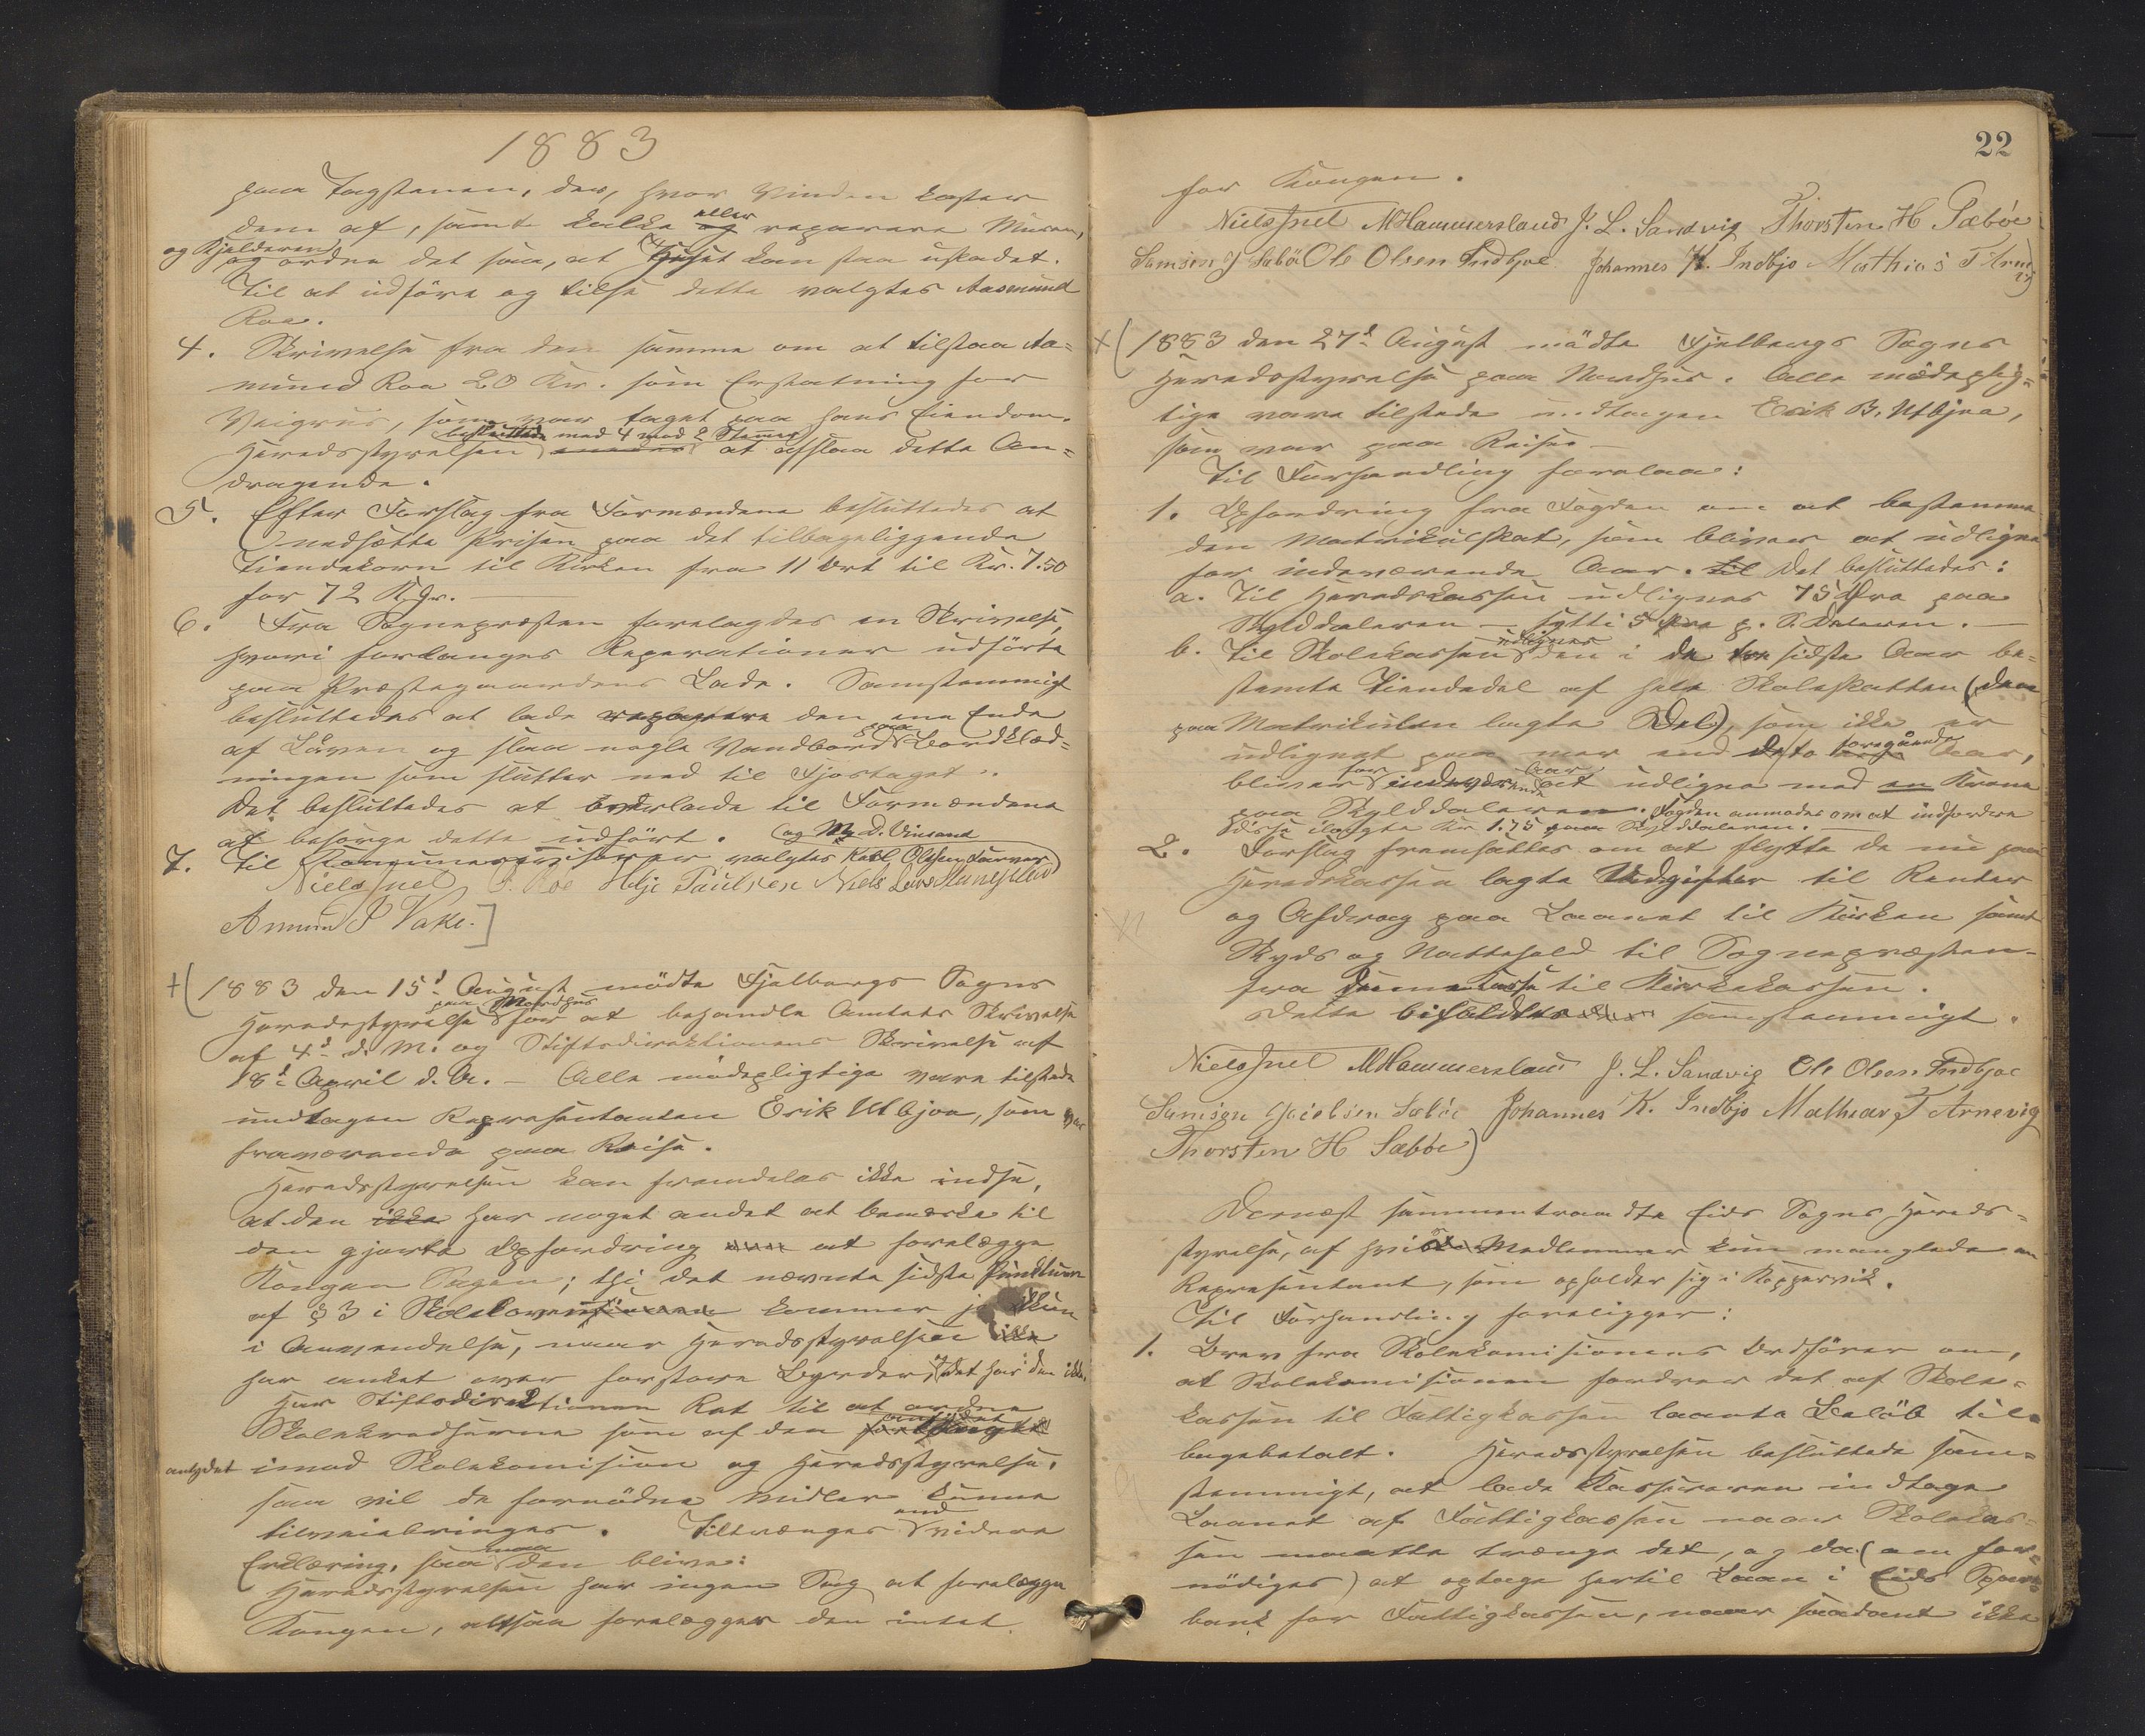 1883
paa Tagstenen, der, hvor Vinden kaster
dem af, samt kalke og eller reparere Muren,
og Kjelderen og ordne det saa, at Huset kan staa uskadet.
Til at udföre og tilse dette valgtes Aasmund
Roa.
4. Skrivelse fra den samme om at tilstaa Aa=
mund Roa 20 Kr. som Erstatning for
Veigrus, som var taget paa hans Eiendom.
Heredsstyrelsen besluttede med 4 mod 2 Stemmer at afslaa dette An=
dragende.
5. Efter Forslag fra Formændene besluttedes at
nedsætte Prisen paa det tilbageliggende
Tiendekorn til Kirken fra 11 Ort til Kr. 7.50
for 72 Kgr.
6. Fra Sognepresten forelagdes en Skrivelse,
hvori forlanges Reperationer udförte
paa Prestegaardens Lade. Samstemmigt
besluttedes at lade den ene Ende
af Löven og slaa nogle Vandbord paa Bordklæd=
ningen som slutter ned til Fjostaget.
Det besluttedes at overlade til Formændene
at besörge dette udfört.
7. Til valgtes Karl Olsen og M. D. Vinsand
Niels Juel Helje Paulsen Niels
Amund P Vake.
1883 den 15d August mödte Fjelbergs Sogns
Heredsstyrelse paa Nordhus for at behandle Amtets Skrivelse
af 4d d. M. og Stiftsdirektionens Skrivelse af
18d April d. A. - Alle mödepligtige vare tilstede
undtagen Repræsentanten Erik Utbjoa, som var
fraværende paa Reise.
Heredsstyrelsen kan fremdeles ikke indse,
at den ikke har noget andet at bemærke til
den gjorte Opfordring at forelægge
Kongen Sagen; thi det nævnte sidste Punktum
af § 3 i Skoleloven kommer jo kun
i Anvendelse, naar Heredsstyrelsen
har anket over for store Byrder, og det har den ikke.
Har Stiftsdirektionen Ret til at ordne
Skolekredserne som af den antydet
antydet imod Skolekomision og Heredsstyrelse,
saa vil de fornödne Midler kunne
tilveiebringes. Tiltrænges end videre
Erklæring, saa maa den blive:
Heredsstyrelsen har ingen Sag at forelægge
Kongen, altsaa forelægger den intet
22
for Kongen.
Niels Juel M Hammersland J. L. Sandvig Thorsten H Sæböe
Samson J Sæböe Ole Olsen Indbjoe Johannes K. Indbjo Mathias T Arne
vig
1883 den 27d August mödte Fjelbergs Sogns
Heredsstyrelse paa Nordhus. Alle mödeplig=
tige vare tilstede undtagen Erik B. Utbjoa,
som var paa Reise
Til Forhandling forelaa:
1. Opfordring fra Fogden om at bestemme
den Matrikulskat, som bliver at udligne
for indeværende Aar. til Det besluttedes:
a. Til Heredskassen udlignes 75 Öre paa
Skylddaleren - sytti 5 Öre p. S. Daleren. -
b. Til Skolekassen udlignes den i de tre sidste Aar be=
stemte Tiendedel af hele Skoleskatten (den
paa Matrikulen lagte Del), som ikke er
udlignet paa mer end de to foregaaende Aar,
bliver for indeværende Aar at udligne med en Krone
paa Skylddaleren. Fogden anmodes om at indfordre
disse ilagte Kr. 1.75 paa Skylddaleren.
2. Forslag fremsattes om at flytte de nu paa
Heredskassen lagte Udgifter til Renter
og Afdrag paa Laanet til Kirken samt
Skyds og Nattehold til Sognepræsten
fra denne Kasse til Kirkekassen.
Dette bifaldtes samstemmigt.
Niels Juel M Hammersland J. L. Sandvig Ole Olsen Indbjoe
Samson Jacobsen Sæböe Johannes K. Indbjo Mathias T Arnevig
Thorsten H Sæböe)
Dernæst sammentraadte Eids Sogns Hereds=
styrelse, af hvis Medlemmer kun manglede en
Repræsentant, som opholder sig i Koppervik.
Til Forhandling foreligger:
1. Brev fra Skolekomisionens Ordförer om,
at Skolekomisionen fordrer det af Skole=
kassen til Fattigkassen laante Belöb til=
bagebetalt. Heredsstyrelsen besluttede sam=
stemmigt, at lade Kassereren indtage
Laanet af Fattigkassen naar Skolekas=
sen maatte trænge det, og da (om for=
nödiges) at optage hertil Laan i Eids Spare=
bank for Fattigkassen, naar saadant ikke